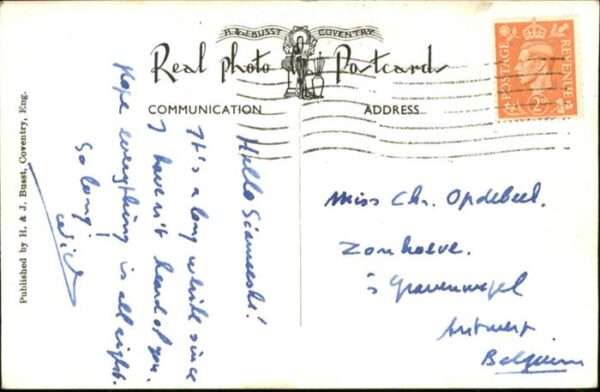 H. & J. BUSST COVENTRY
Real photo Postcards
COMMUNICATION ADDRESS
POSTAGE REVENUE
2D
Published by H. & J. Busst, Coventry, Eng.
Hello
It's a long while since
I haven't heard of you.
Hope everything is all right.
So long
Miss Chr. Opdebeek.
Zonhoeve.
's Gravenwezel
Antwerp.
Belgium